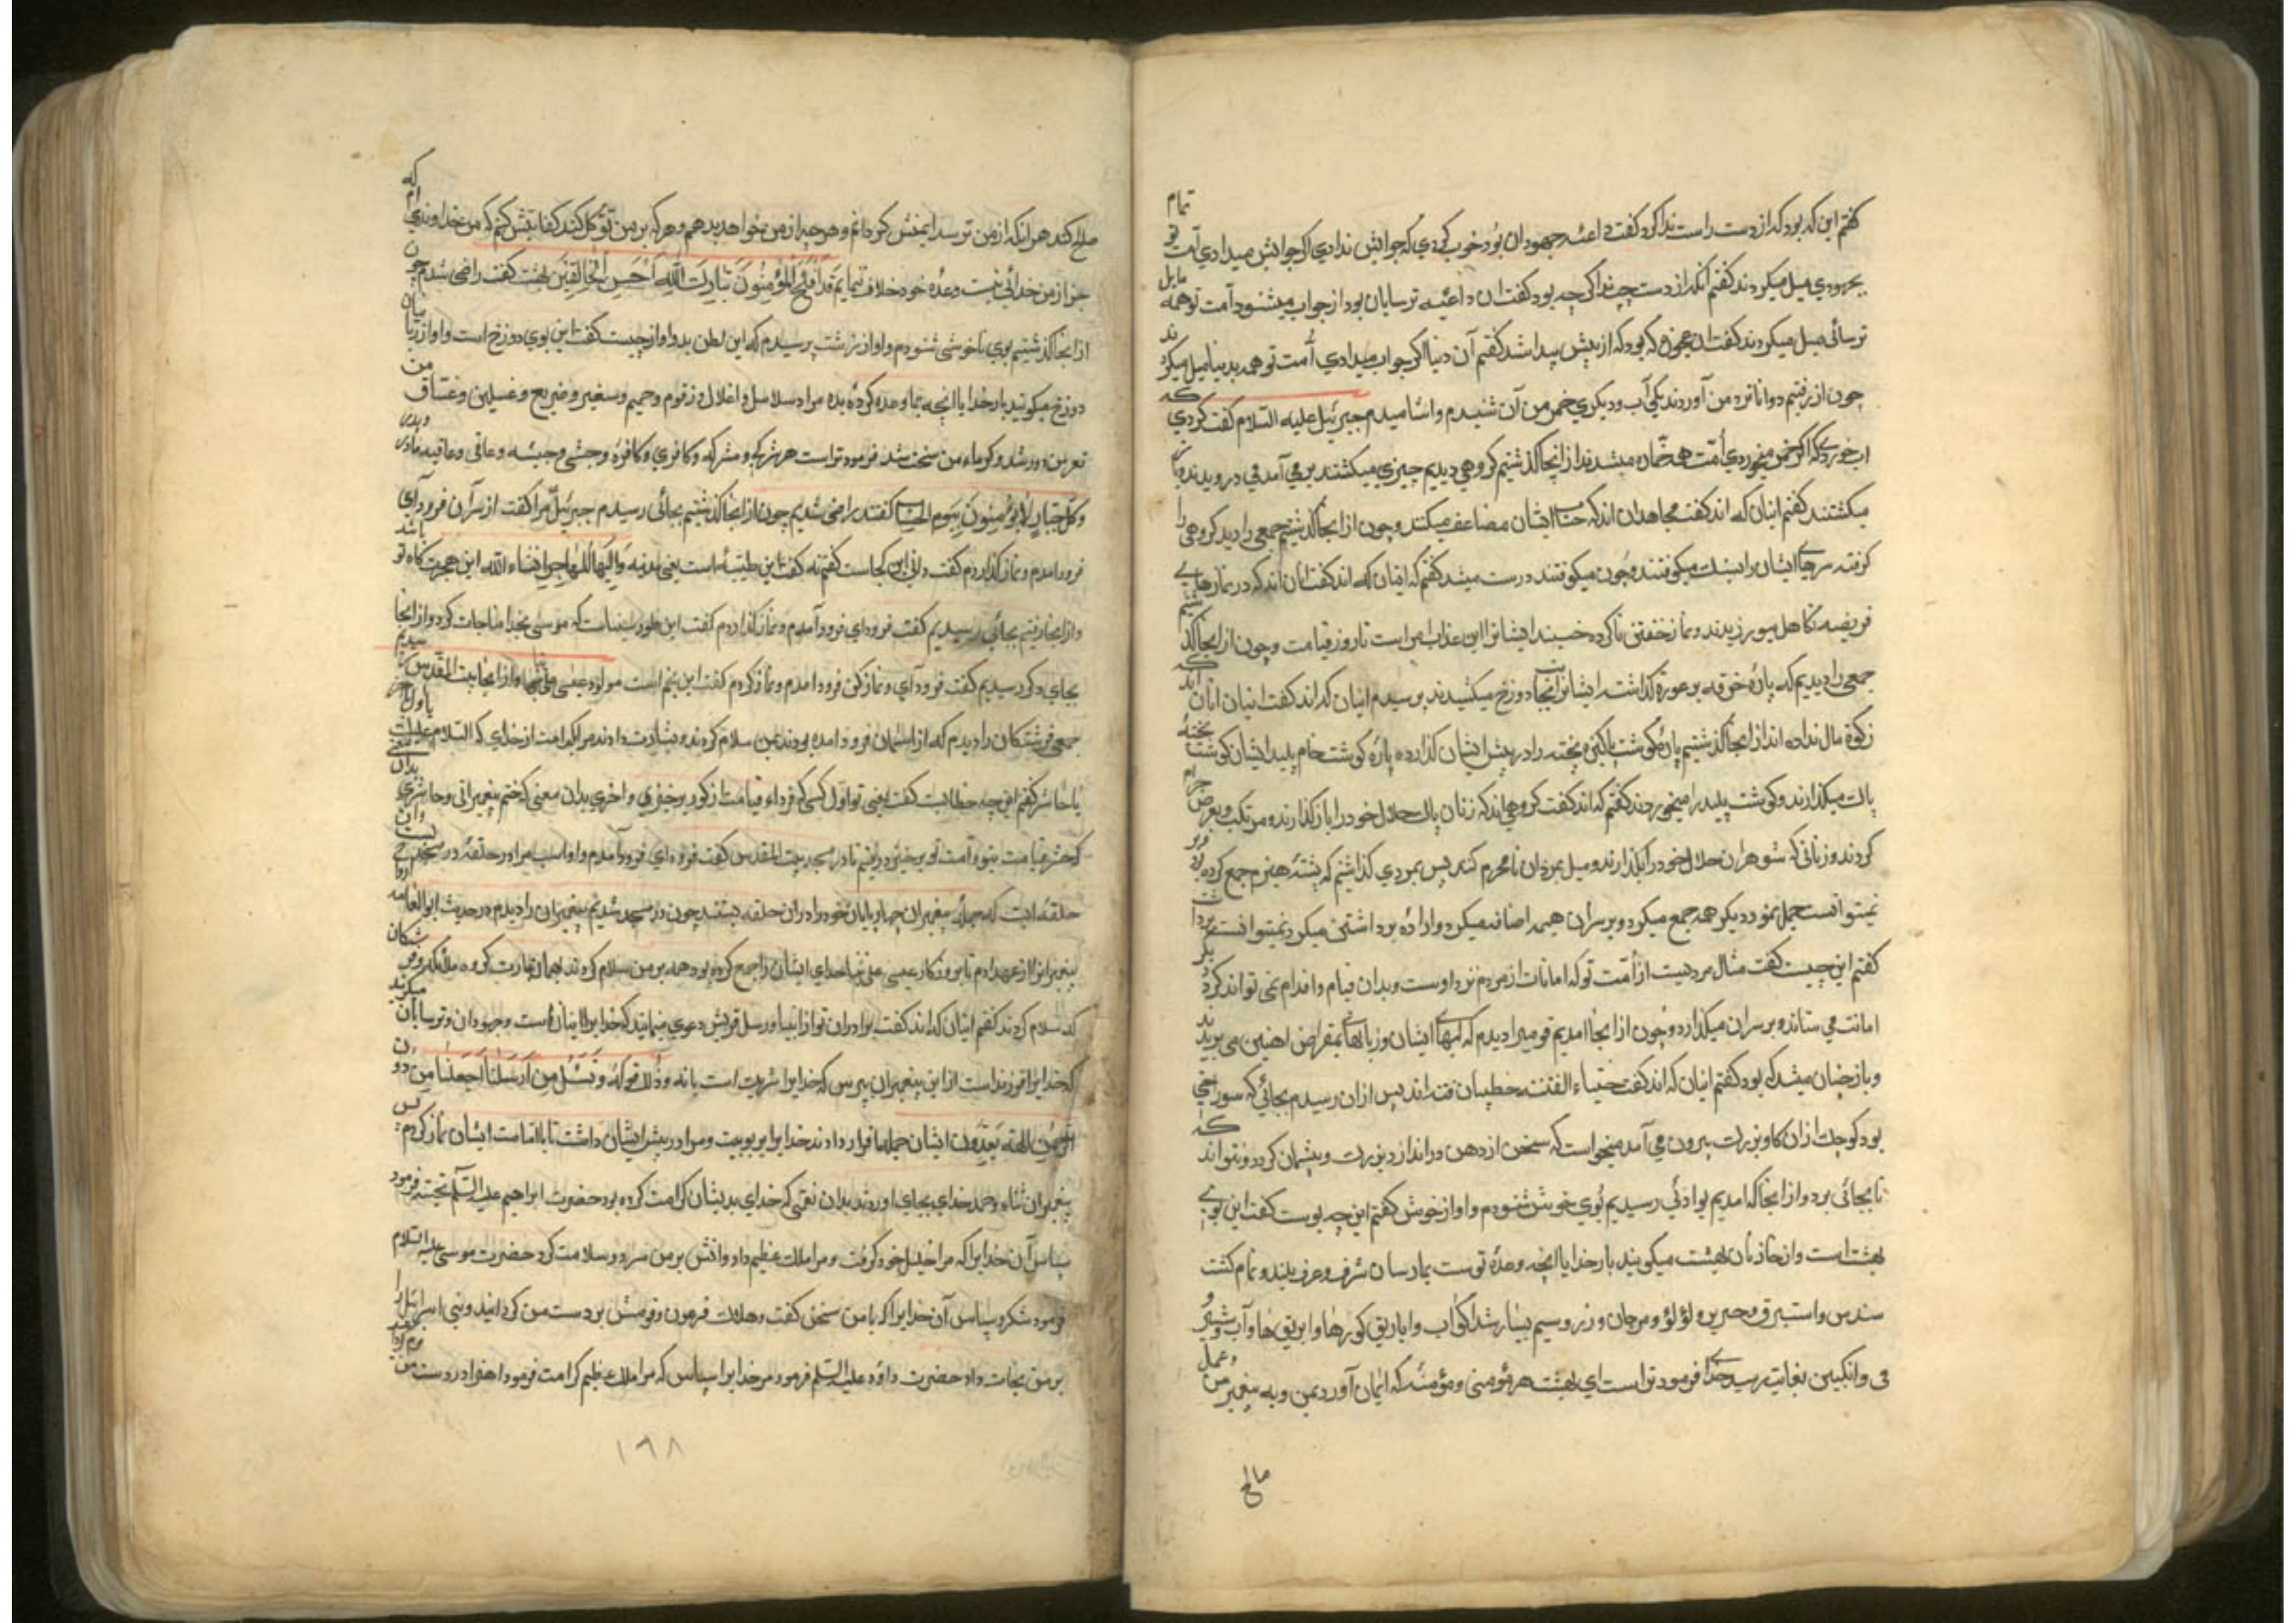 گفتم این که بود که از دست راست ندا کرد گفت داعئه جهودان بود خوب کردی که جوابش ندادی اگر جوابش میدادی امت تو تمام
بجهودی میل میکردند گفتم آنکه از دست چپ ندا کرد که بود گفت ان داعئیه ترسایان بود از جواب میشنود امت تو همه مایل
ترسائی میل میکردند گفت ان عجوزه که بود که از پیش پیدا شد گفتم آن دنیا اگر جواب میدادی اُمت تو همه بدنیا میل میکردند
چون از رفتیم دو انا نزد من آوردند یکی آب و دیگری خمر من آن شنیدم و اشامیدم جبرئیل علیه السلام گفت کردی که
اب خوردی که اگر خمر میخوردی اُمت همه خمّاره میشدند از انجا گذشتیم گروهی دیدیم چیزی میکشتند بر می آمد فی درویدند و باز
میکشتند گفتم اینان که اند گفت مجاهدان اند که حسنات ایشان مضاعف میکند و چون از انجا گذشتیم جمعی را دید گروهی را
گرفته سرهای ایشان را بسنک میکوفتند و چون میکوفتند درست میشد گفتم که اینان که اند گفت انان اند که در نمازهای
فریضه تکاهل میورزیدند و نماز خفتن ناکرده خسبند ایشانرا این عذاب امر است تا روز قیامت و چون از اینجا گذشتیم
جمعی را دیدیم که پارهٔ خرقه بر عورة گذاشته ایشانرا بجانب دوزخ میکشیدند پرسیدم اینان که اند گفت اینان انانند که
زکوة مال نداده اند از انجا گذشتیم پارهٔ گوشت پاکیزه پخته را در پیش ایشان گذارده پارهٔ گوشت خام پلید ایشان گوشت پخته
پاک میگذارند و گوشت پلید را میخوردند گفتم که اند گفت گروهی اند که زنان پاک حلال خود را باز گذارند و مرتکب و بعرض حرام
گردند و زنانی که شوهران حلال خود را بگذارند و میل بمردان نامحرم کنند پس بمردی گذاشتم که پشتهٔ هیزم جمع کرده بود و
نمیتوانست حمل نمود دیگر همه جمع میکرد و بر سر ان هیمه اضافه میکرد و اراده برداشتن میکرد و نمیتوانست برداشت
گفتم این چیست گفت مثال مردیست از اُمّت تو که امانات از مردم نزد اوست و بدان قیام و اقدام نمی تواند کرد دیگر
امانت می ستاند و بر سر ان میگذارد و چون از انجا امدیم قومیرا دیدم که لبهای ایشان و زبانهای بمقراض اهنین می بریدند
و باز چنان میشد که بود گفتم اینان که اند گفت خطباء الفتنه خطیبان فتنه اند پس از ان رسیدم بجائی که سوراخی
بود کوچک از ان گاو بزرک بیرون می آمد میخواست که سخن از دهن در اندازد بزرک و پشیمان گردد و نتواند که
تا بجائی برد و از انجا که امدیم بوادئی رسیدیم بُوی خوش شنودم و اواز خوش گفتم این چه بوست گفت این بوی
بهشت است و از خازنان بهشت میگویند بار خدایا انچه وعدهٔ توست بما رسان شرف و عرف بلند و تمام گشت
سندس و استبرق و حریر و لؤلؤ و مرجان و زر و سیم بسیار شد اکواب و اباریق کورها و ابریق ها و آب و شیر و
می و انگبین بغایت رسید خدای فرمود تراست ای بهشت هر مؤمنی و مؤمنهٔ که ایمان آورد بمن و به پیغمبر من و عمل
صالح
صالح کند هر انکه از من ترسد ایمنش گردانم و هر چه از من بخواهد بدهم و هر که بر من توکّل کند کفایتش کنم که من خداوندی ام که
جز از من خدائی نیست وعده خود خلاف ننمایم قَد اَفْلَحَ المُؤْمِنُونَ تَبارَکَ اللّهُ اَحْسَنُ الْخالِقینَ بهشت گفت راضی شدم چون
از انجا گذشتیم بوی ناخوشی شنودم و اواز زشت پرسیدم که این لطن بد و اواز چیست گفت این بوی دوزخ است و اواز زبانیان
دوزخ میگوئید بار خدایا انچه بما وعده کردهٔ بده مرا سلاسل و اغلال و زقوم و حمیم و سعیر و ضریع و غسلین و غسّاق من
قعر من دور شد و گرماء من سخت شد فرمود تراست هر مشرک و مشرکه و کافری و کافره و خبیثی و خبیثه و عاقی و عاقیه مادر و پدر
وکلّ جبّار لا یُؤمِنُونَ بِیَوم الحِساب گفتند راضی شدیم چون از انجا گذشتیم بجائی رسیدم جبرئیلؑ مرا گفت از بر آن فرود آی
فرود امدم و نماز گذاردم گفت دانی این کجاست گفتم نه گفت این طیّبه است یعنی مدینه وَالَیها المُهاجر انشاء الله این هجرتگاه تو باشد
و از انجا رفتیم بجائی رسیدیم گفت فرود ای فرود آمدم و نماز گذاردم گفت این طور سیناست که موسی بخدا مناجات کرد و از انجا
بجای دگر رسیدیم گفت فرود آی و نماز کن فرود امدم و نماز کردم گفت این بیت لحم است مولود عیسی علی نبینا و از انجا به بیت المقدس رسیدیم
جمعی فرشتگان را دیدم که از اسمان فرود امده بودند بمن سلام کردند و بشارت دادند مرا بکرامت از خدای که السلام علیک یا اول یا آخر
یا حاشر گفتم این چه خطابست گفت یعنی تو اول کسی که فرداء قیامت از گور برخیزی و اخری بدان معنی که ختم پیغمبرانی و حاشری بدان معنی
که حشر قیامت بتو و اُمت تو برخیزد رفتیم تا در مسجد بیت المقدس گفت فرود ای فرود آمدم و او اسب مرا در حلقهٔ در مسجد بست و این
حلقه ایست که همهٔ پیغمبران چهارپایان خود را در ان حلقه بستند چون در مسجد شدیم پیغمبران را دیدم در حدیث ابو العالیه ارواح
پیغمبرانرا از عهد ادم تا بروزگار عیسی علی نبینا خدای ایشان را جمع کرده بود همه بر من سلام کردند بهمان عبارت که گروه ملائکه و فرشتگان
که سلام کردند گفتم اینان که اند گفت برادران تو از انبیا و رسل قریش دعوی مینمایند که خدایرا انبازست و جهودان و ترسایان میگویند
که خدایرا فرزند است از این پیغمبران بپرس که خدایرا شریک است یا نه وذلک قوله وَسْئَلْ مَنْ اَرْسَلْنا اَجَعَلْنا مِنْ دُونِ
الرّحمن الهة یُعبَدُونَ ایشان جمله اقرار دادند خدایرا بربوبیت و مرا در پیش ایشان داشت تا با امامت ایشان نماز کردم پس
پیغمبران ثناء و حمد خدای بجای اوردند بدان نعمتی که خدای بدیشان کرامت کرده بود حضرت ابراهیم علیه السّلم نخست فرمود
سپاس آن خدایرا که مرا خلیل خود گرفت و مرا ملک عظیم داد و اتش بر من سرد و سلامت کرد حضرت موسی علیه السلام
فرمود شکر و سپاس آن خدایرا که با من سخن گفت و هلاک فرعون و قومش بر دست من گردانید و بنی اسرائیل را
بر من نجات داد حضرت داود علیه السّلم فرمود مر خدایرا سپاس که مرا ملک عظیم کرامت فرمود اهن در دست من نرم
۱۹۸